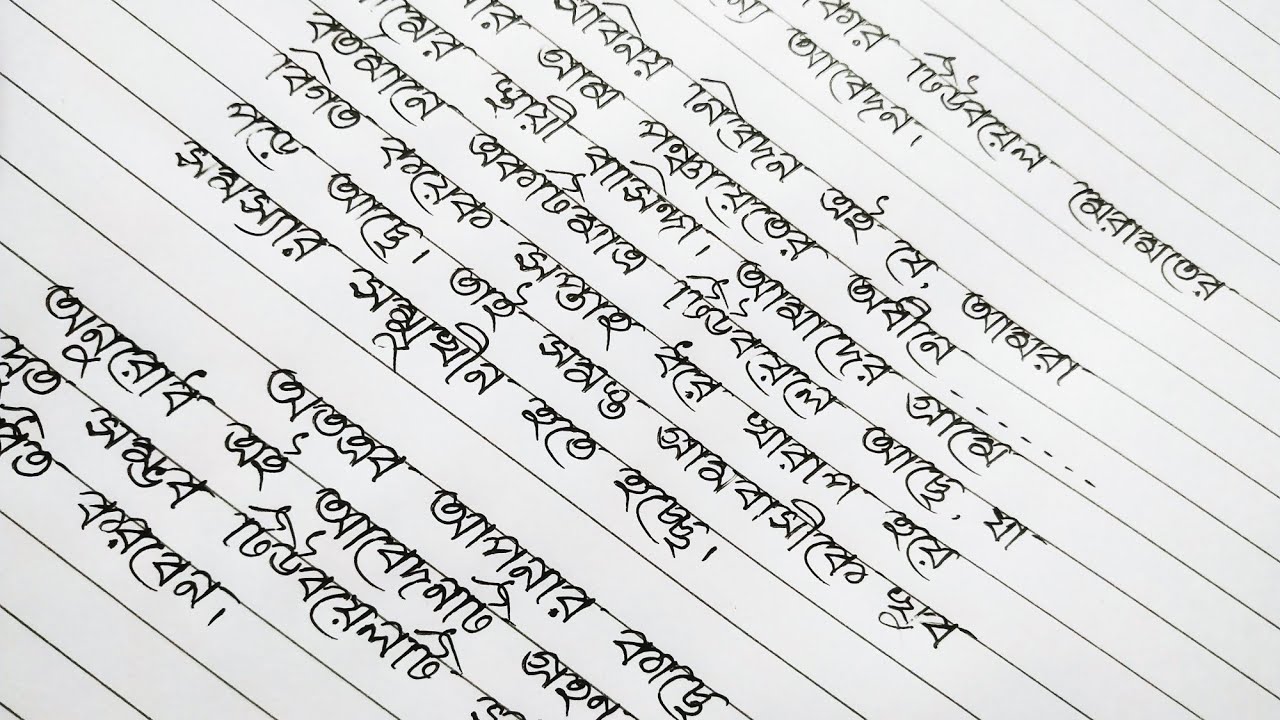 টিউবয়েল মেরামতের
আবেদন।
সবিনয় নিবেদন এই যে, আমরা
গ্রাম পঞ্চায়েতের অধীনে -----
গ্রামের স্থায়ী বাসিন্দা। আমাদের গ্রামে
বর্তমানে একটিমাত্র টিউবয়েলে আছে, যা
বিগত কয়েক সপ্তাহ ধরে খারাপ হয়ে
পড়ে আছে। তাই সমস্ত গ্রামবাসীকে খুব
সমস্যার সম্মুখীন হতে হচ্ছে।
অতএব আপনার কাছে
অনুরোধ এই আবেদনটি গ্রহন
দ্রুত সম্ভব টিউবয়েলটি
করিবেন।